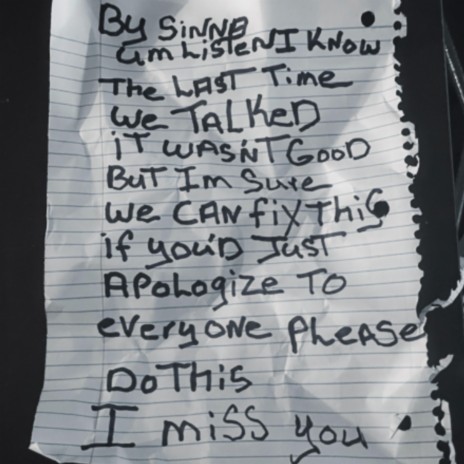 By SiNNA
am ListeN I KNow
The LAST Time
We TALKeD
iT WASN'T GooD
BuT Im Sure
We CAN fix This
if you'D JusT
APoLogize To
everyoNe PLeAse
Do This
I miss you